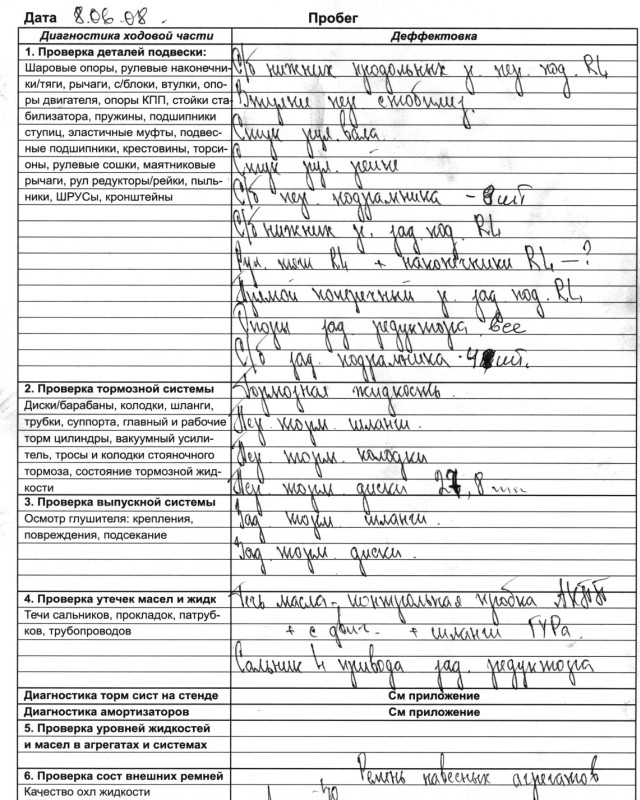 Дата 8.06.08. Пробег
Диагностика ходовой части Деффектовка
1. Проверка деталей подвески:
Шаровые опоры, рулевые наконечни-
ки/тяги, рычаги, с/блоки, втулки, опо-
ры двигателя, опоры КПП, стойки ста-
билизатора, пружины, подшипники
ступиц, эластичные муфты, подвес-
ные подшипники, крестовины, торси-
оны, рулевые сошки, маятниковые
рычаги, рул редукторы/рейки, пыль-
ники, ШРУСы, кронштейны
С/б нижних продольных р. пер. под. RL
Втулки пер. стабилиз.
Стук рул. вала
Стук рул. рейки
С/б пер. подрамника - 8шт
С/б нижних р. зад. под. RL
Рул. тяги RL + наконечники RL - ?
Прямой поперечный р. зад. под. RL
Опоры зад. редуктора все
С/б зад. подрамника - 4 шт.
2. Проверка тормозной системы
Диски/барабаны, колодки, шланги,
трубки, суппорта, главный и рабочие
торм цилиндры, вакуумный усили-
тель, тросы и колодки стояночного
тормоза, состояние тормозной жид-
кости
Тормозная жидкость.
Пер. торм. шланги.
Пер. торм. колодки
Пер. торм. диски 27,8 mm
3. Проверка выпускной системы
Осмотр глушителя: крепления,
повреждения, подсекание
Зад. торм. шланги.
Зад. торм. диски.
4. Проверка утечек масел и жидк
Течи сальников, прокладок, патруб-
ков, трубопроводов
Течь масла - контрольная пробка АКПП
+ с двиг. + шланги ГУРа.
Сальник L привода зад. редуктора
Диагностика торм сист на стенде См приложение
Диагностика амортизаторов См приложение
5. Проверка уровней жидкостей
и масел в агрегатах и системах
6. Проверка сост внешних ремней Ремень навесных агрегатов
Качество охл жидкости